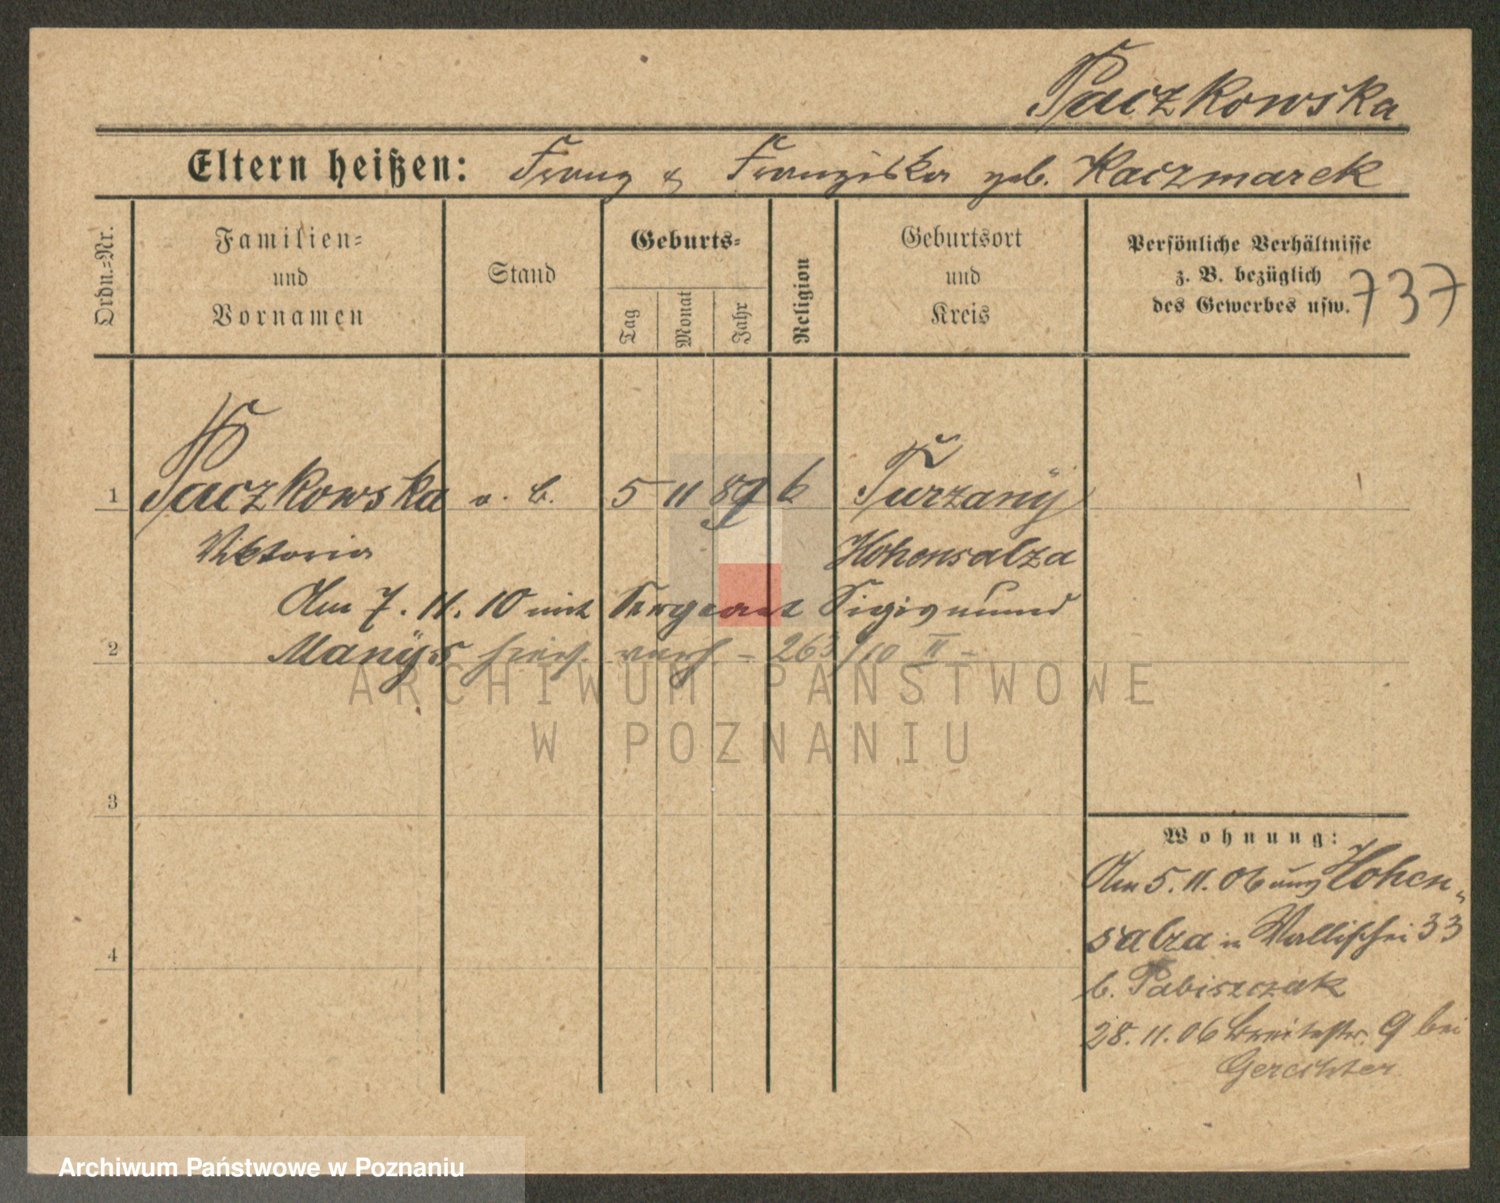 Paczkowska
Eltern heißen: Franz & Franziska geb. Kaczmarek
Ordn.-Nr.
Familien-
und
Vornamen
Stand
Geburts-
Tag
Monat
Jahr
Religion
Geburtsort
und
Kreis
Persönliche Verhältnisse
z. B. bezüglich
des Gewerbes usw.
737
1 Paczkowska o. B. 5 11 89 k Turzany
Viktoria Hohensalza
Am 7. 11. 10 mit Sergeant Sigismund
2 hier verh - 263/10 II -
3
4
Wohnung:
Am 5. 11. 06 aus Hohen-
salza n Wallischei 33
b. Pabiszczak
28. 11. 06 Breitestr. 9 bei
Gerichter
ARCHIWUM PAŃSTWOWE
W POZNANIU
Archiwum Państwowe w Poznaniu